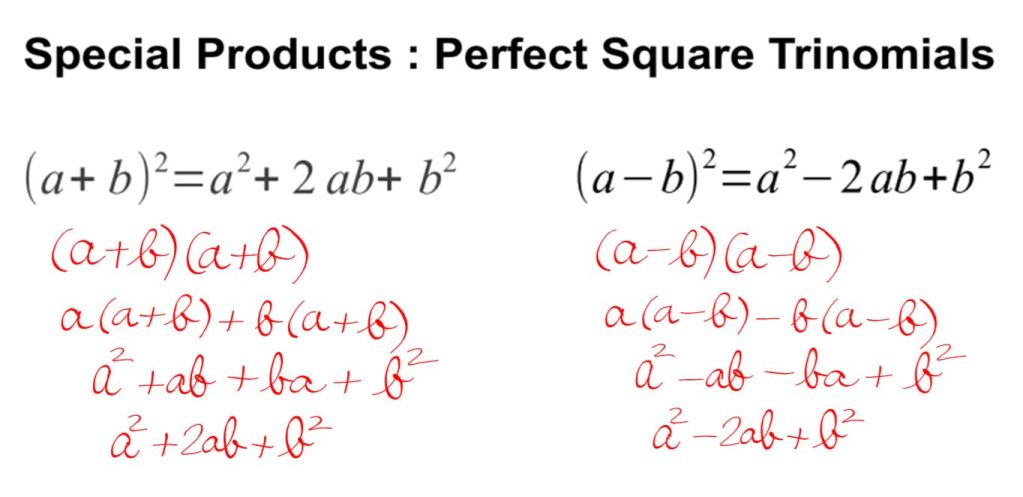 Special Products : Perfect Square Trinomials
(a+ b)²=a²+ 2 ab+ b²
(a+b)(a+b)
a(a+b)+b(a+b)
a²+ab+ba+b²
a²+2ab+b²
(a−b)²=a²−2ab+b²
(a−b)(a−b)
a(a−b)−b(a−b)
a²−ab−ba+b²
a²−2ab+b²